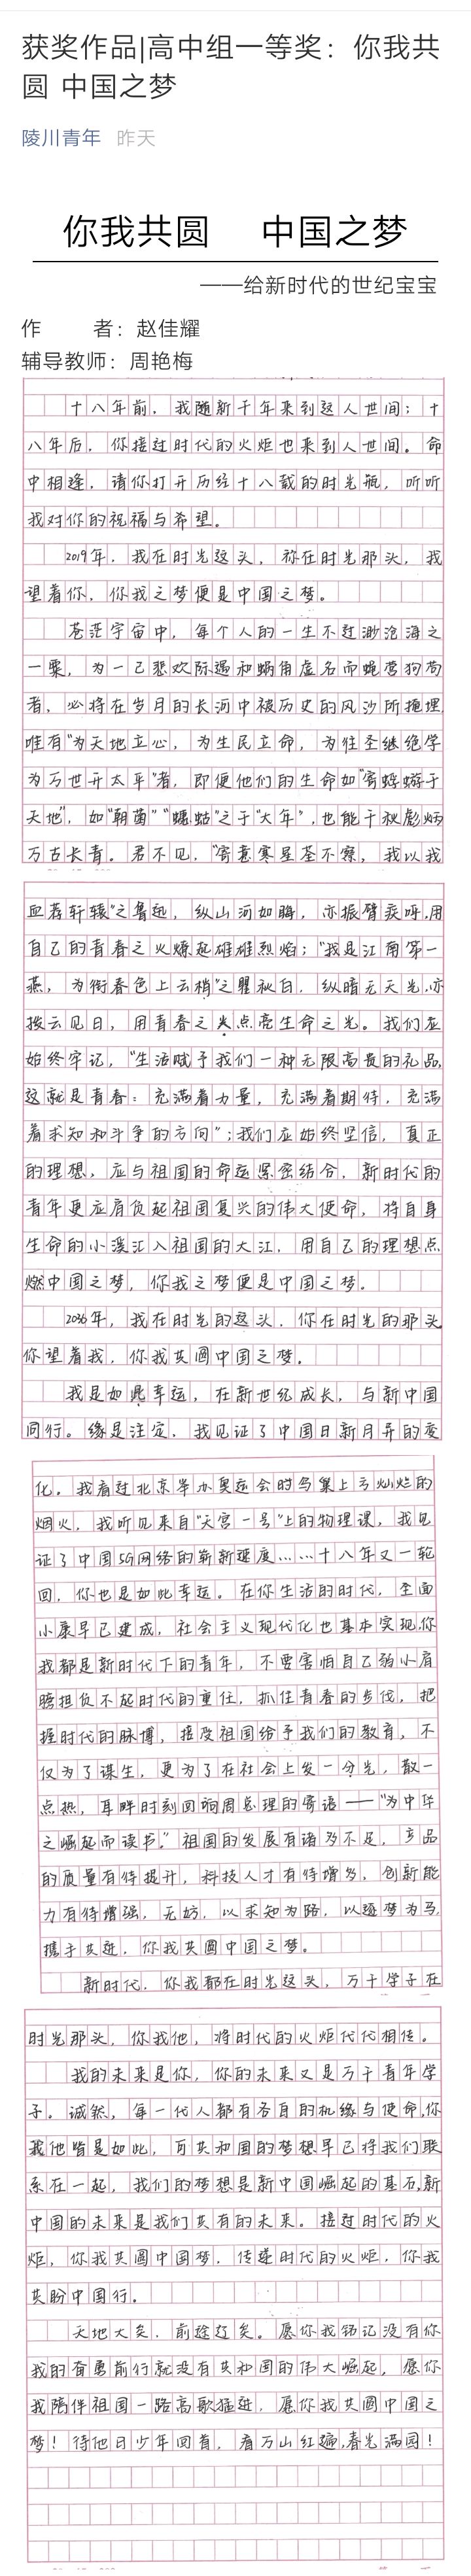 获奖作品|高中组一等奖：你我共
圆 中国之梦
陵川青年 昨天
你我共圆 中国之梦
——给新时代的世纪宝宝
作 者：赵佳耀
辅导教师：周艳梅
十八年前，我随新千年来到这人世间；十
八年后，你接过时代的火炬也来到人世间。命
中相逢，请你打开历经十八载的时光瓶，听听
我对你的祝福与希望。
2019年，我在时光这头，你在时光那头，我
望着你，你我之梦便是中国之梦。
苍茫宇宙中，每个人的一生不过渺沧海之
一粟，为一己悲欢际遇和蜗角虚名而蝇营狗苟
者，必将在岁月的长河中被历史的风沙所掩埋，
唯有“为天地立心，为生民立命，为往圣继绝学
为万世开太平”者，即便他们的生命如“寄蜉蝣于
天地”，如“朝菌”“蟪蛄”之于“大年”，也能千秋彪炳
万古长青。君不见，“寄意寒星荃不察，我以我
血荐轩辕”之鲁迅，纵山河如晦，亦振臂疾呼，用
自己的青春之火燎起雄雄烈焰；“我是江南第一
燕，为衔春色上云梢”之瞿秋白，纵暗无天光，亦
拨云见日，用青春之火点亮生命之光。我们应
始终牢记，“生活赋予我们一种无限高贵的礼品，
这就是青春：充满着力量，充满着期待，充满
着求知和斗争的方向”；我们应始终坚信，真正
的理想，应与祖国的命运紧密结合，新时代的
青年更应肩负起祖国复兴的伟大使命，将自身
生命的小溪汇入祖国的大江，用自己的理想点
燃中国之梦，你我之梦便是中国之梦。
2036年，我在时光的这头，你在时光的那头，
你望着我，你我共圆中国之梦。
我是如此幸运，在新世纪成长，与新中国
同行。缘是注定，我见证了中国日新月异的变
化。我看过北京举办奥运会时鸟巢上方灿烂的
烟火，我听见来自“天宫一号”上的物理课，我见
证了中国5G网络的崭新速度……十八年又一轮
回，你也是如此幸运。在你生活的时代，全面
小康早已建成，社会主义现代化也基本实现，你
我都是新时代下的青年，不要害怕自己弱小肩
膀担负不起时代的重任，抓住青春的步伐，把
握时代的脉搏，接受祖国给予我们的教育，不
仅为了谋生，更为了在社会上发一分光，散一
点热，耳畔时刻回响周总理的寄语——“为中华
之崛起而读书。”祖国的发展有诸多不足，产品
的质量有待提升，科技人才有待增多，创新能
力有待增强，无妨，以求知为路，以逐梦为马，
携手共进，你我共圆中国之梦。
新时代，你我都在时光这头，万千学子在
时光那头，你我他，将时代的火炬代代相传。
我的未来是你，你的未来又是万千青年学
子。诚然，每一代人都有各自的机缘与使命，你
我他皆是如此，可共和国的梦想早已将我们联
系在一起，我们的梦想是新中国崛起的基石，新
中国的未来是我们共有的未来。接过时代的火
炬，你我共圆中国梦，传递时代的火炬，你我
共盼中国行。
天地大矣，前途辽矣。愿你我铭记没有你
我的奋勇前行就没有共和国的伟大崛起，愿你
我陪伴祖国一路高歌猛进，愿你我共圆中国之
梦！待他日少年回首，看万山红遍，春光满园！